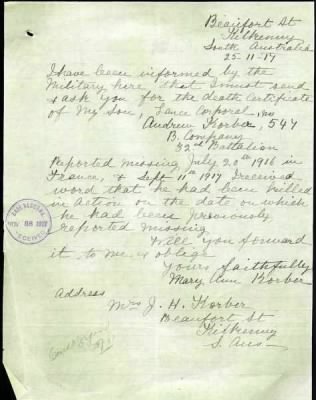 Beaufort St
Kilkenny
South Australia
25-11-17
I have been informed by the
Military here that I must send
& ask you for the death Certificate
of My Son, Lance Corporal, no
Andrew Korber, 547
B. Company
32nd Battalion
Reported missing July 20th 1916 in
France, & Sept 11th 1917 I received
word that he had been killed
in action on the date on which
he had been previously
reported missing
Will you forward
it to me & oblige
Yours faithfully
Mary Ann Korber
Address
Mrs J. H. Korber
Beaufort St
Kilkenny
S. Aus
RECEIVED